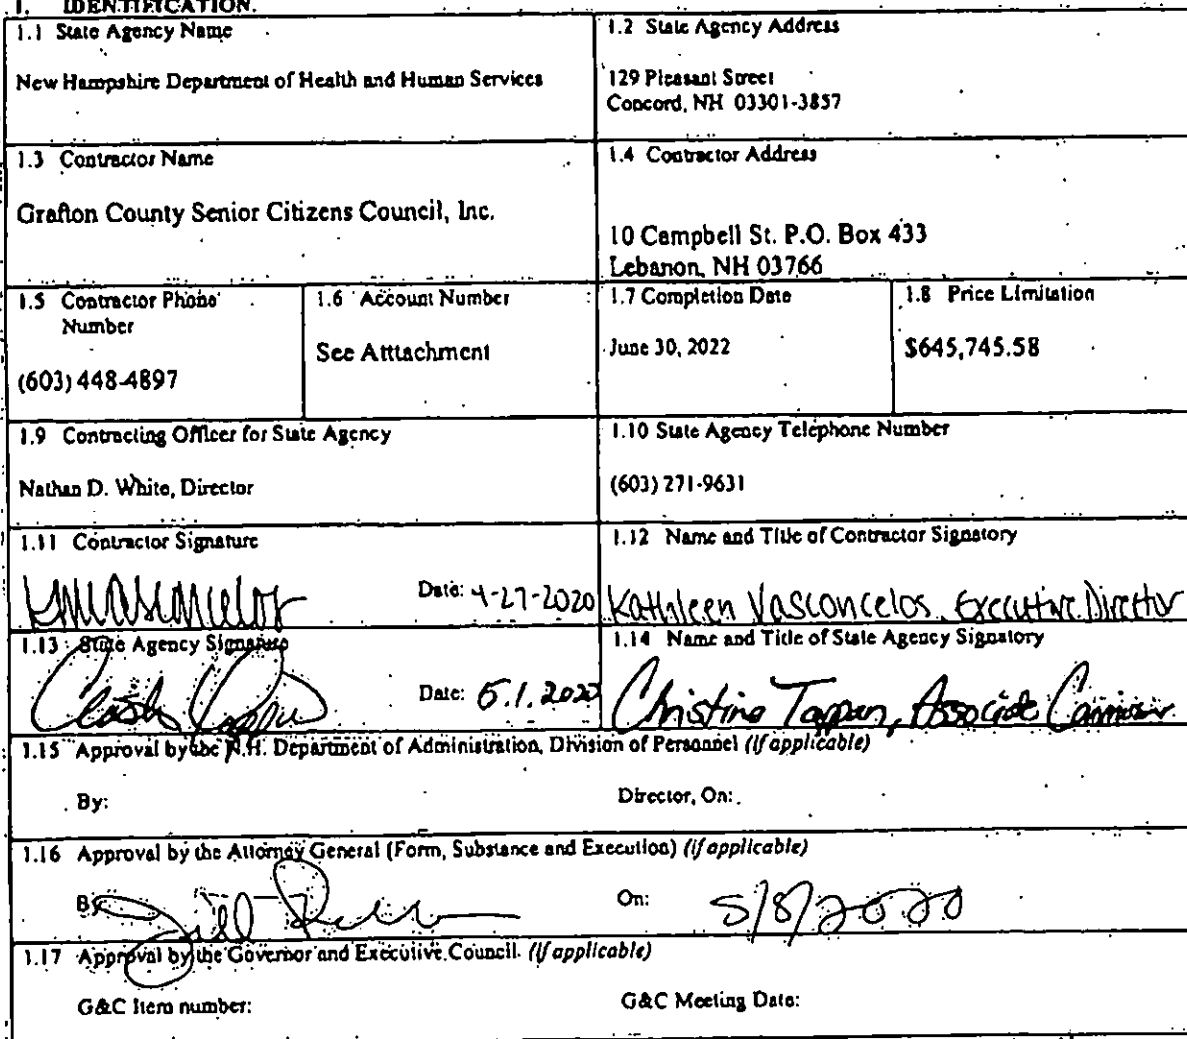 1. IDENTIFICATION.
1.1 State Agency Name
New Hampshire Department of Health and Human Services
1.2 State Agency Address
129 Pleasant Street
Concord, NH 03301-3857
1.3 Contractor Name
Grafton County Senior Citizens Council, Inc.
1.4 Contractor Address
10 Campbell St. P.O. Box 433
Lebanon, NH 03766
1.5 Contractor Phone
Number
(603) 448-4897
1.6 Account Number
See Atttachment
1.7 Completion Date
June 30, 2022
1.8 Price Limitation
$645,745.58
1.9 Contracting Officer for State Agency
Nathan D. White, Director
1.10 State Agency Telephone Number
(603) 271-9631
1.11 Contractor Signature
Date: 4-27-2020
1.12 Name and Title of Contractor Signatory
Kathleen Vasconcelos, Executive Director
1.13 State Agency Signature
Date: 5.1.2020
1.14 Name and Title of State Agency Signatory
Christine Tappan, Associate
1.15 Approval by the N.H. Department of Administration, Division of Personnel (if applicable)
By:
Director, On:
1.16 Approval by the Attorney General (Form, Substance and Execution) (if applicable)
By:
On: 5/8/2020
1.17 Approval by the Governor and Executive Council (if applicable)
G&C Item number:
G&C Meeting Date: